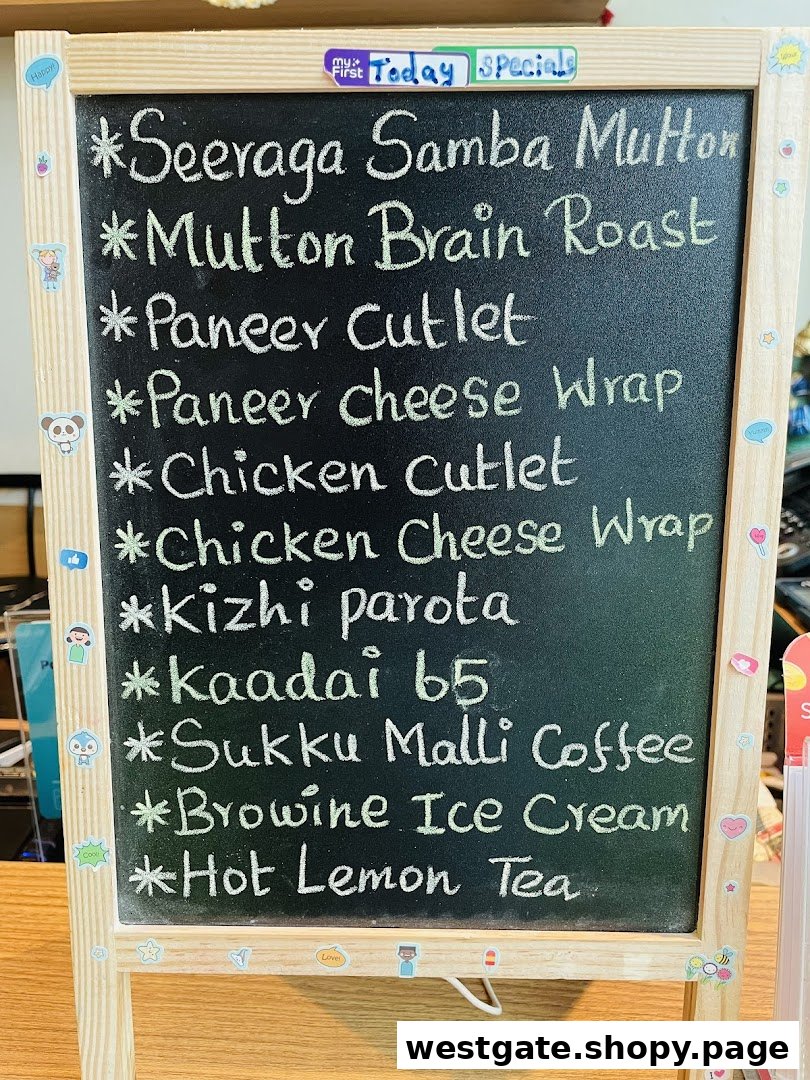 Happy!
my First Today Specials
*Seeraga Samba Mutton
*Mutton Brain Roast
*Paneer Cutlet
*Paneer cheese Wrap
*Chicken Cutlet
*Chicken Cheese Wrap
*Kizhi parota
*Kaadai 65
*Sukku Malli Coffee
*Browine Ice Cream
*Hot Lemon Tea
Cool
Love!
westgate.shopy.page